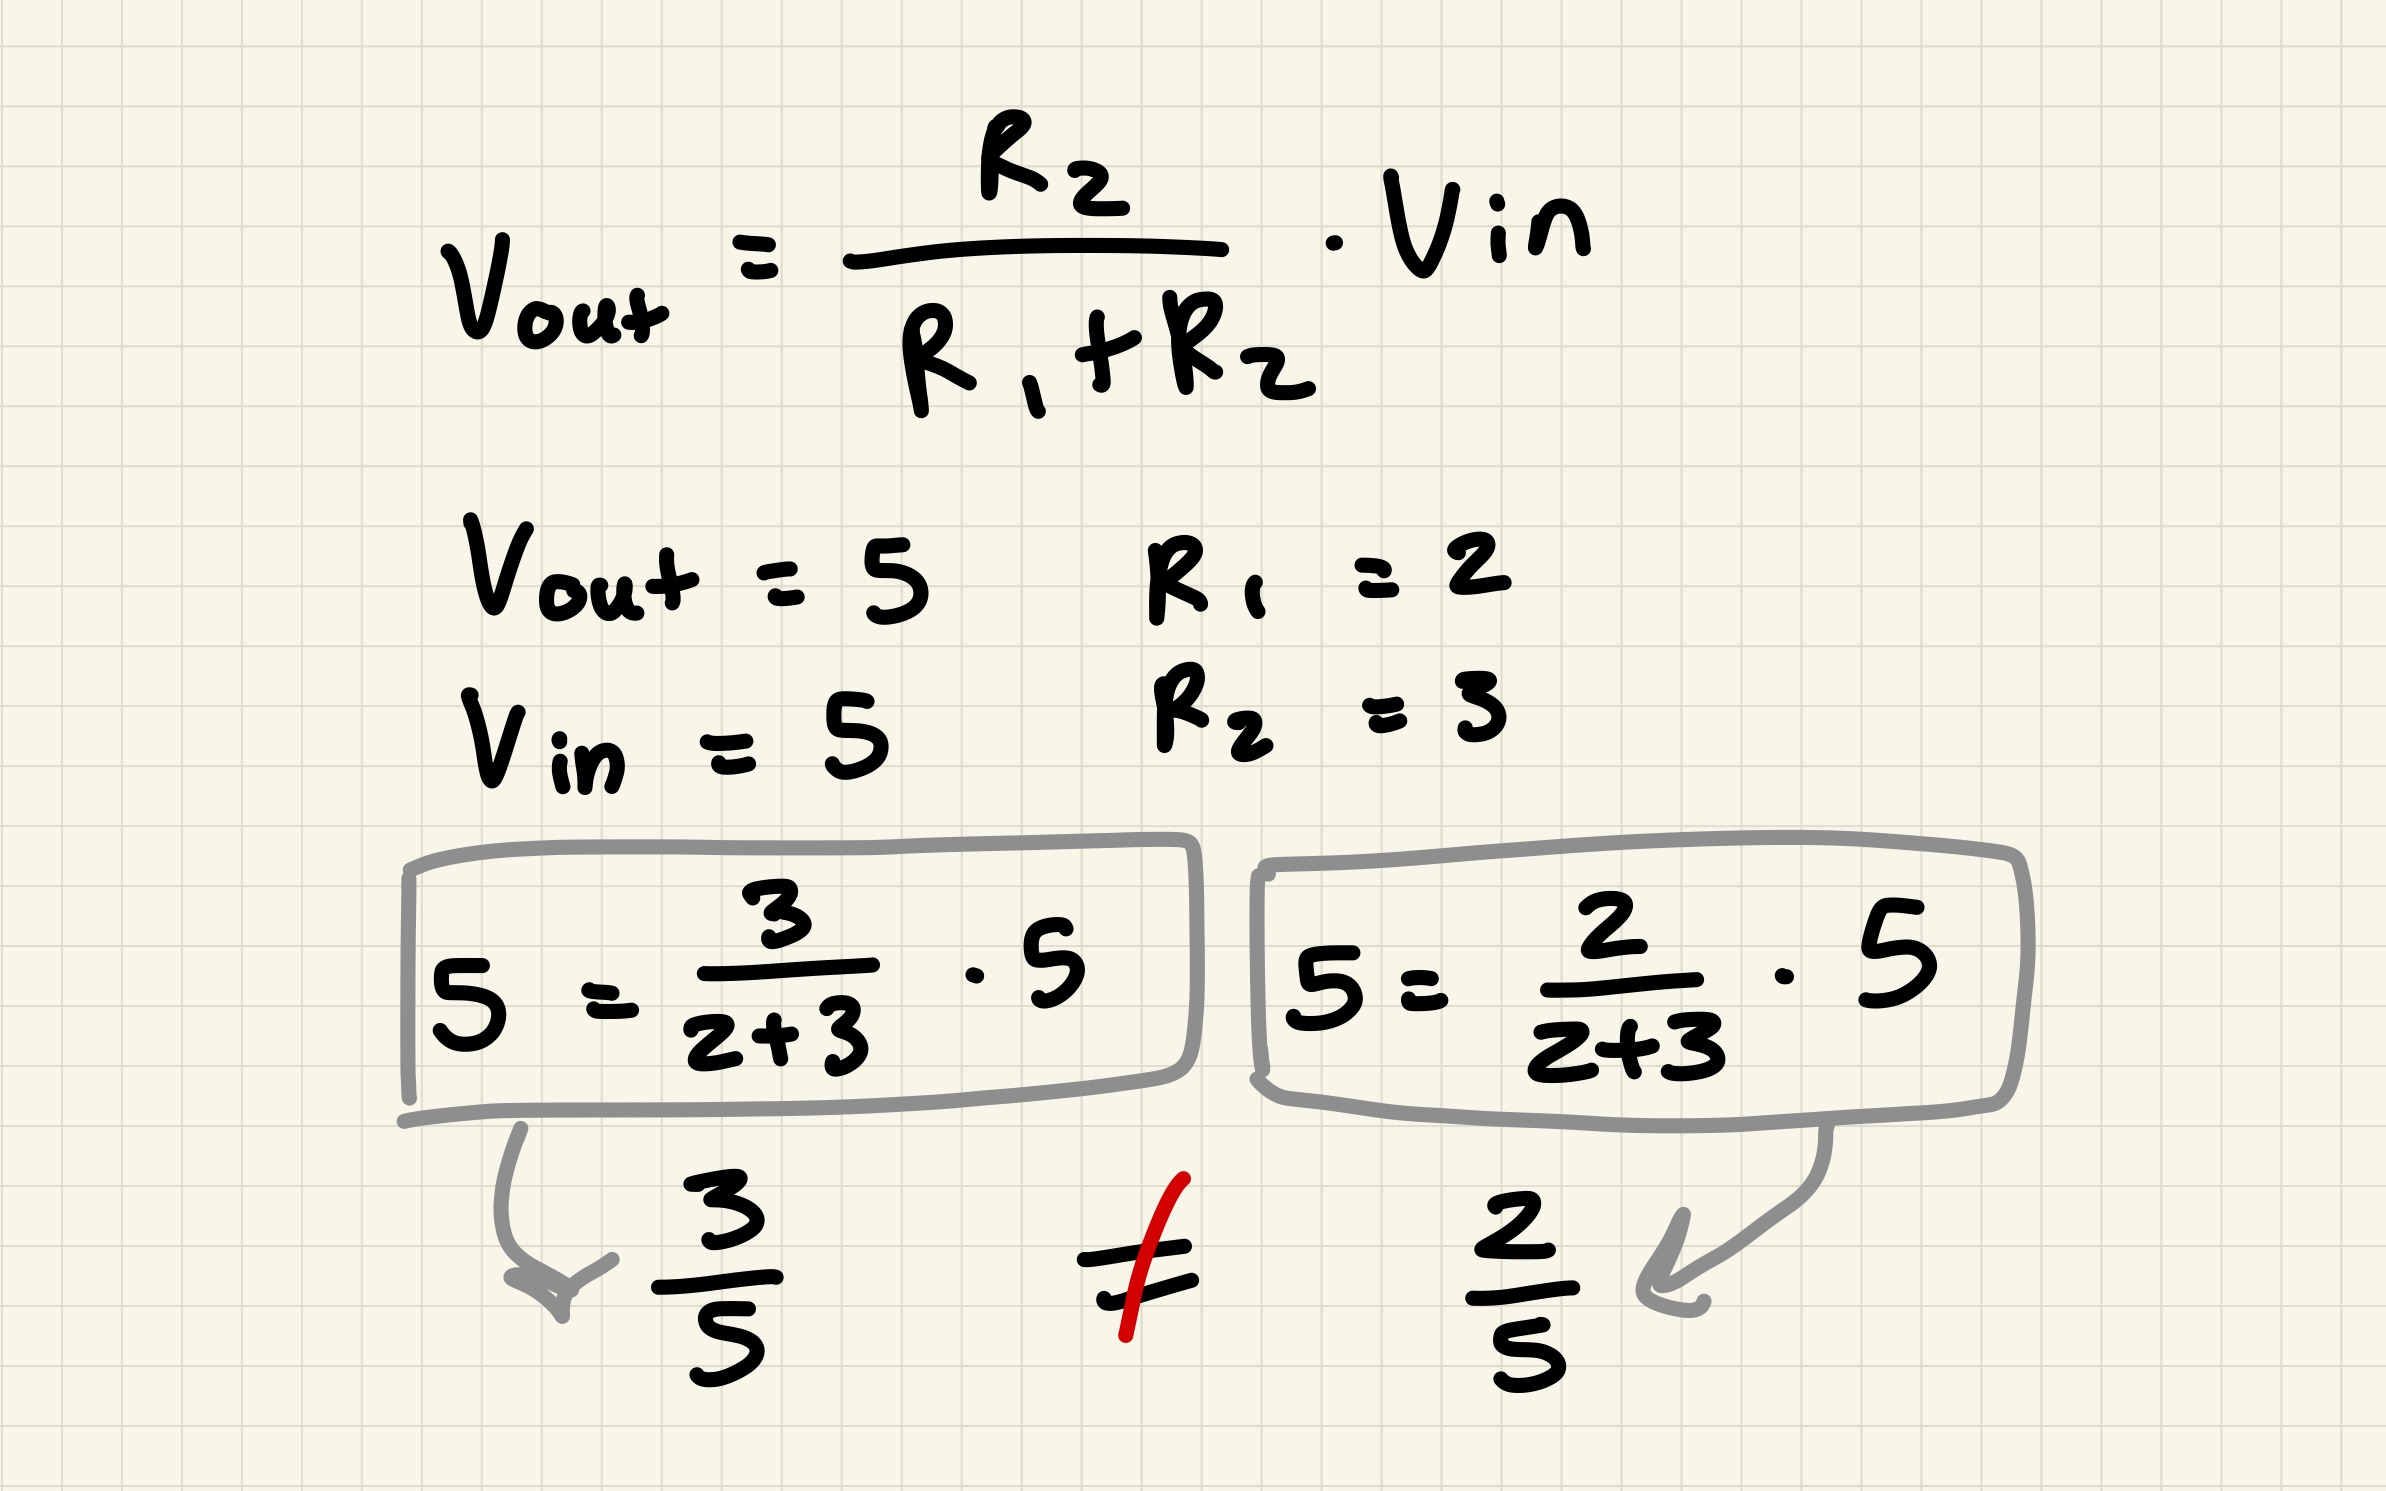 Vout = R2 / (R1+R2) · Vin
Vout = 5 R1 = 2
Vin = 5 R2 = 3
5 = 3 / (2+3) · 5 5 = 2 / (2+3) · 5
3/5 ≠ 2/5